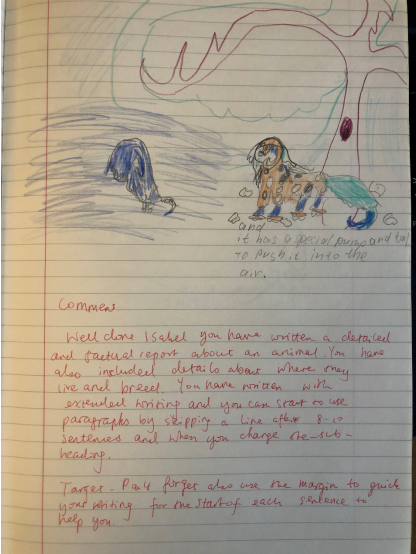 and
it has a special and tail
to push it into the
air.
Comment
Well done Isabel you have written a detailed
and factual report about an animal. You have
also included details about where they
live and breed. You have written with
extended writing and you can start to use
paragraphs by skipping a line after 8-10
sentences and when you change the sub-
heading.
Target - forget also use the margin to guide
your writing for the start of each sentence to
help you.